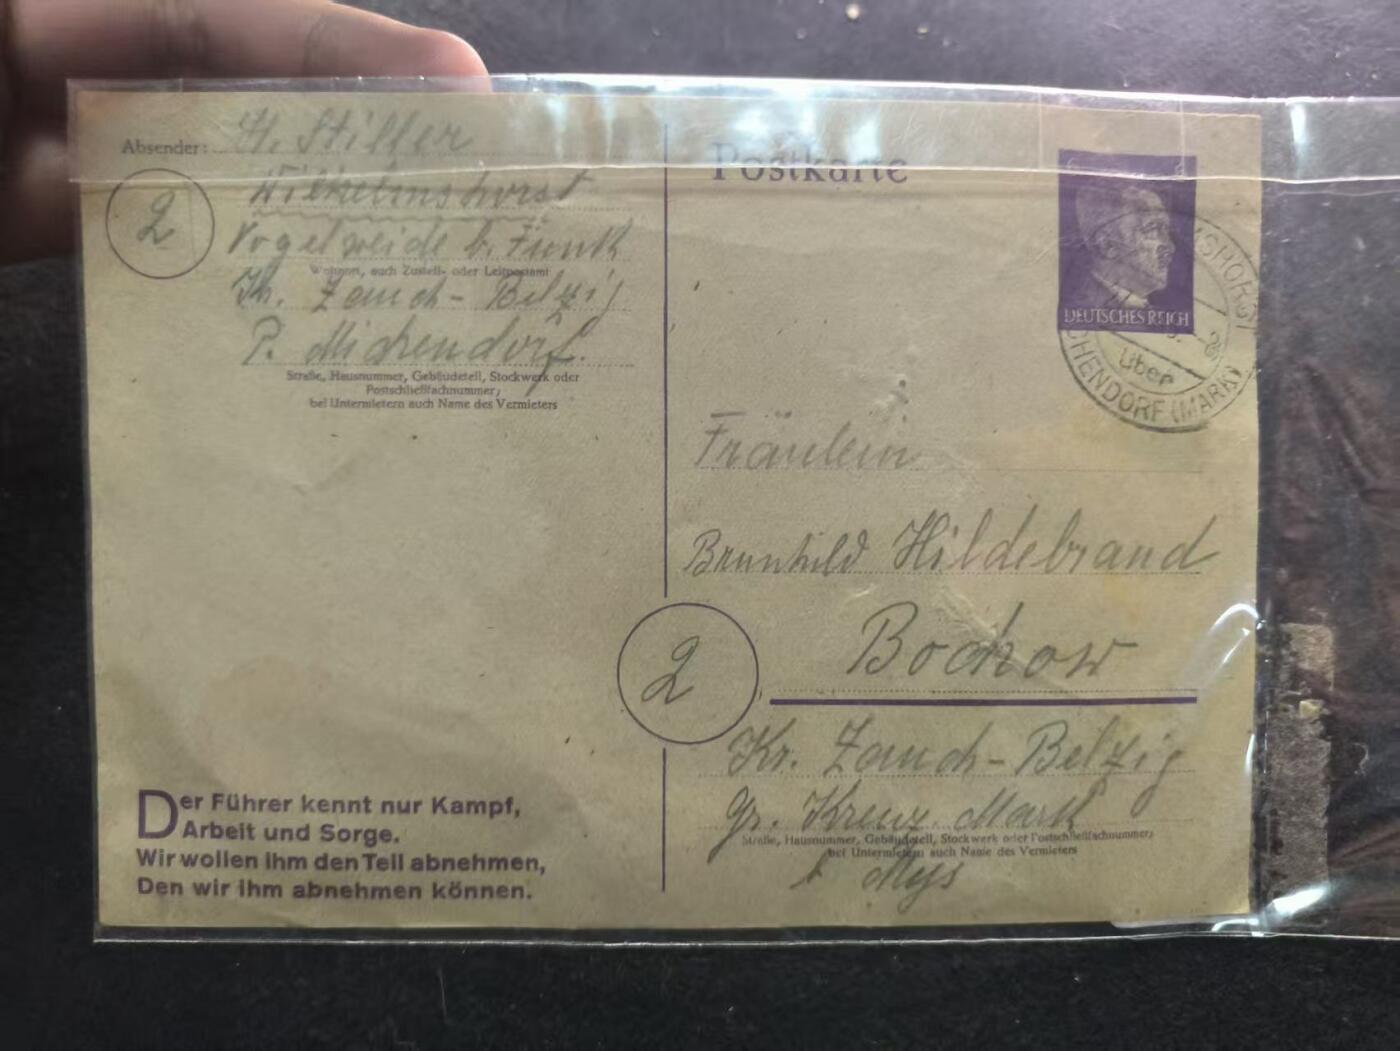 Absender: H. Stiller
Wilhelmshorst
2
Vogelweide b. Funk
Wohnort, auch Zustell- oder Leitpostamt
Kr. Zauch-Belzig
P. Michendorf.
Straße, Hausnummer, Gebäudeteil, Stockwerk oder
Postschließfachnummer;
bei Untermietern auch Name des Vermieters
Postkarte
6 6
DEUTSCHES REICH
MSHORST
über
CHENDORF (MARK)
Fräulein
Brunhild Hildebrand
2
Bochow
Kr. Zauch-Belzig
Gr. Kreuz. Mark
Straße, Hausnummer, Gebäudeteil, Stockwerk oder Postschließfachnummer;
bei Untermietern auch Name des Vermieters
Der Führer kennt nur Kampf,
Arbeit und Sorge.
Wir wollen ihm den Teil abnehmen,
Den wir ihm abnehmen können.